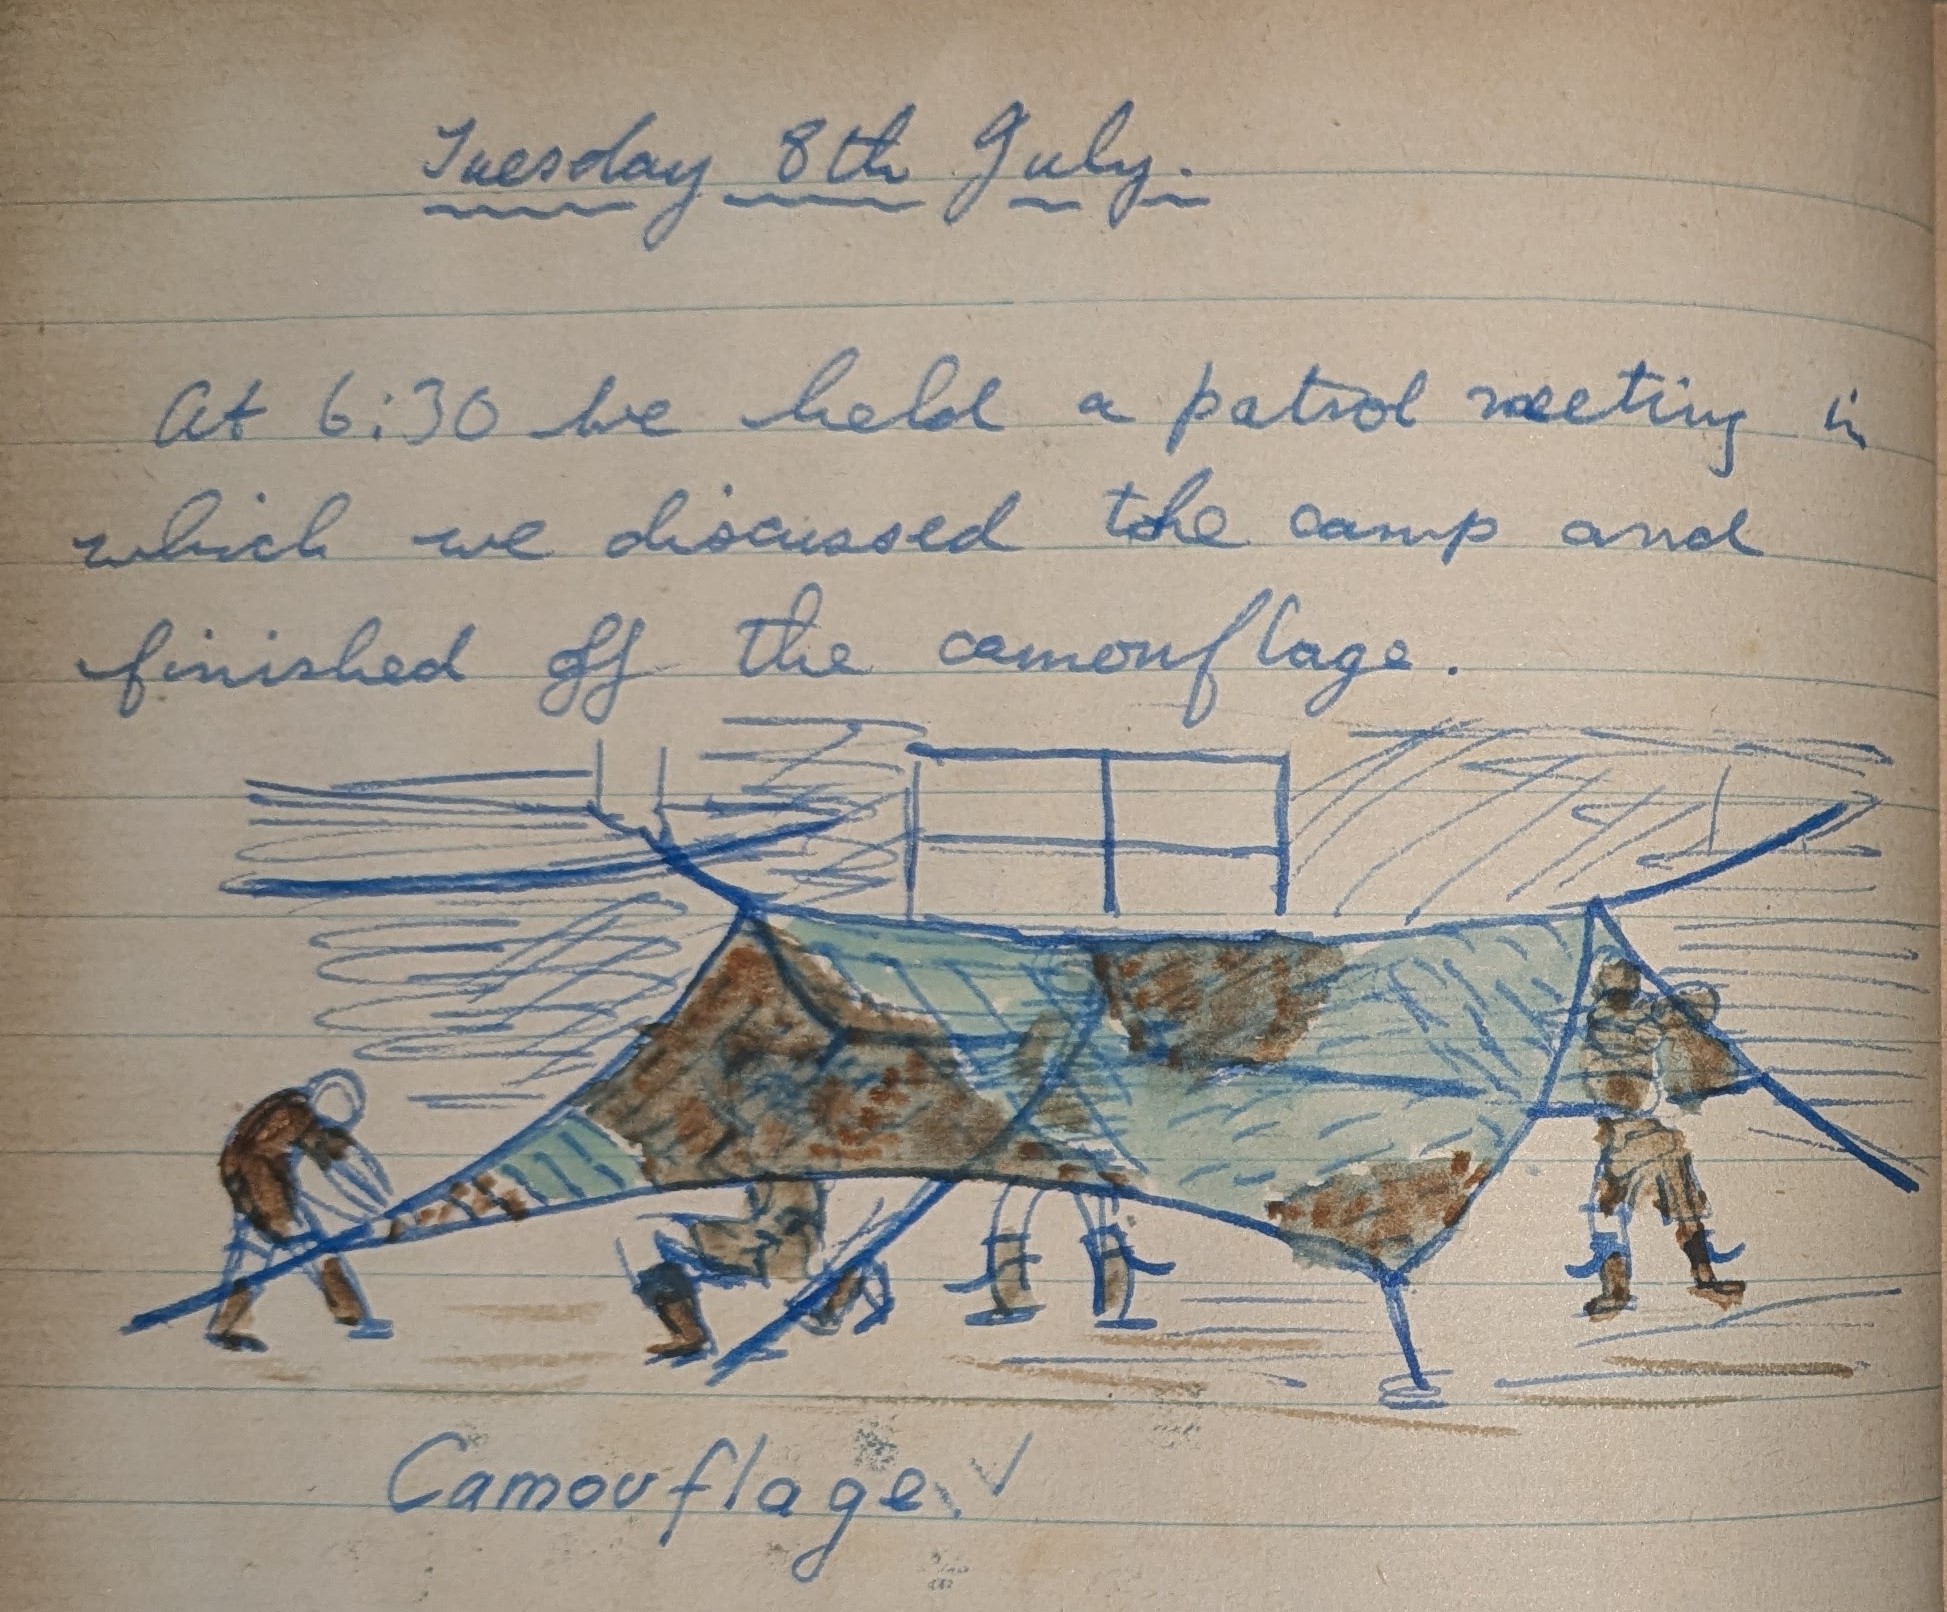 Tuesday 8th July.
At 6:30 we held a patrol meeting in
which we discussed the camp and
finished off the camouflage.
Camouflage.